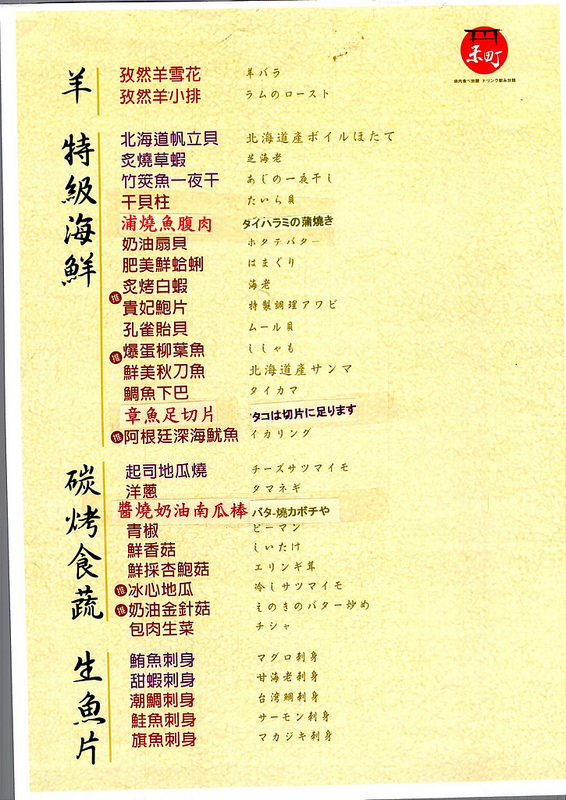 京町
焼肉食べ放題 ドリンク飲み放題
羊
孜然羊雪花 羊バラ
孜然羊小排 ラムのロースト
特級海鮮
北海道帆立貝 北海道産ボイルほたて
炙燒草蝦 芝海老
竹筴魚一夜干 あじの一夜干し
干貝柱 たいら貝
浦燒魚腹肉 タイハラミの蒲焼き
奶油扇貝 ホタテバター
肥美鮮蛤蜊 はまぐり
炙烤白蝦 海老
推 貴妃鮑片 特製調理アワビ
孔雀貽貝 ムール貝
推 爆蛋柳葉魚 ししゃも
鮮美秋刀魚 北海道産サンマ
鯛魚下巴 タイカマ
章魚足切片 タコは切片に足ります
推 阿根廷深海魷魚 イカリング
碳烤食蔬
起司地瓜燒 チーズサツマイモ
洋蔥 タマネギ
醬燒奶油南瓜棒 バタ-燒カボチや
青椒 ピーマン
鮮香菇 しいたけ
鮮採杏鮑菇 エリンギ茸
推 冰心地瓜 冷しサツマイモ
推 奶油金針菇 えのきのバター炒め
包肉生菜 チシャ
生魚片
鮪魚刺身 マグロ刺身
甜蝦刺身 甘海老刺身
潮鯛刺身 台湾鯛刺身
鮭魚刺身 サーモン刺身
旗魚刺身 マカジキ刺身